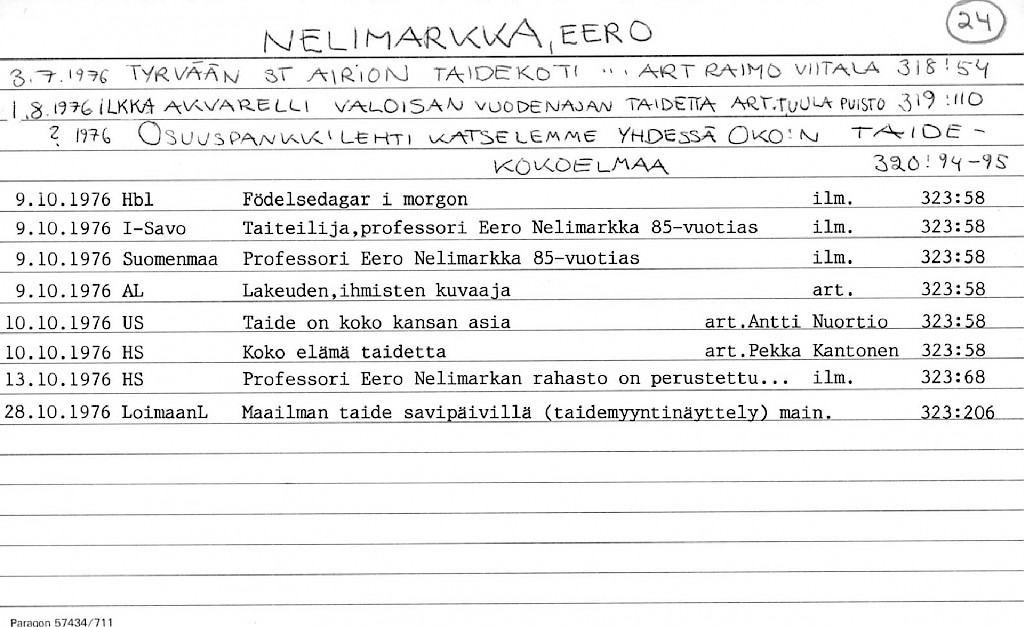 24
NELIMARKKA, EERO
3.7.1976 TYRVÄÄN ST AIRION TAIDEKOTI ... ART RAIMO VIITALA 318:54
1.8.1976 ILKKA AKVARELLI VALOISAN VUODENAJAN TAIDETTA ART.TUULA PUISTO 319:110
? 1976 OSUUSPANKKILEHTI KATSELEMME YHDESSÄ OKO:N TAIDE-
KOKOELMAA 320:94-95
9.10.1976 Hbl Födelsedagar i morgon ilm. 323:58
9.10.1976 I-Savo Taiteilija,professori Eero Nelimarkka 85-vuotias ilm. 323:58
9.10.1976 Suomenmaa Professori Eero Nelimarkka 85-vuotias ilm. 323:58
9.10.1976 AL Lakeuden,ihmisten kuvaaja art. 323:58
10.10.1976 US Taide on koko kansan asia art.Antti Nuortio 323:58
10.10.1976 HS Koko elämä taidetta art.Pekka Kantonen 323:58
13.10.1976 HS Professori Eero Nelimarkan rahasto on perustettu... ilm. 323:68
28.10.1976 LoimaanL Maailman taide savipäivillä (taidemyyntinäyttely) main. 323:206
Paragon 57434/711